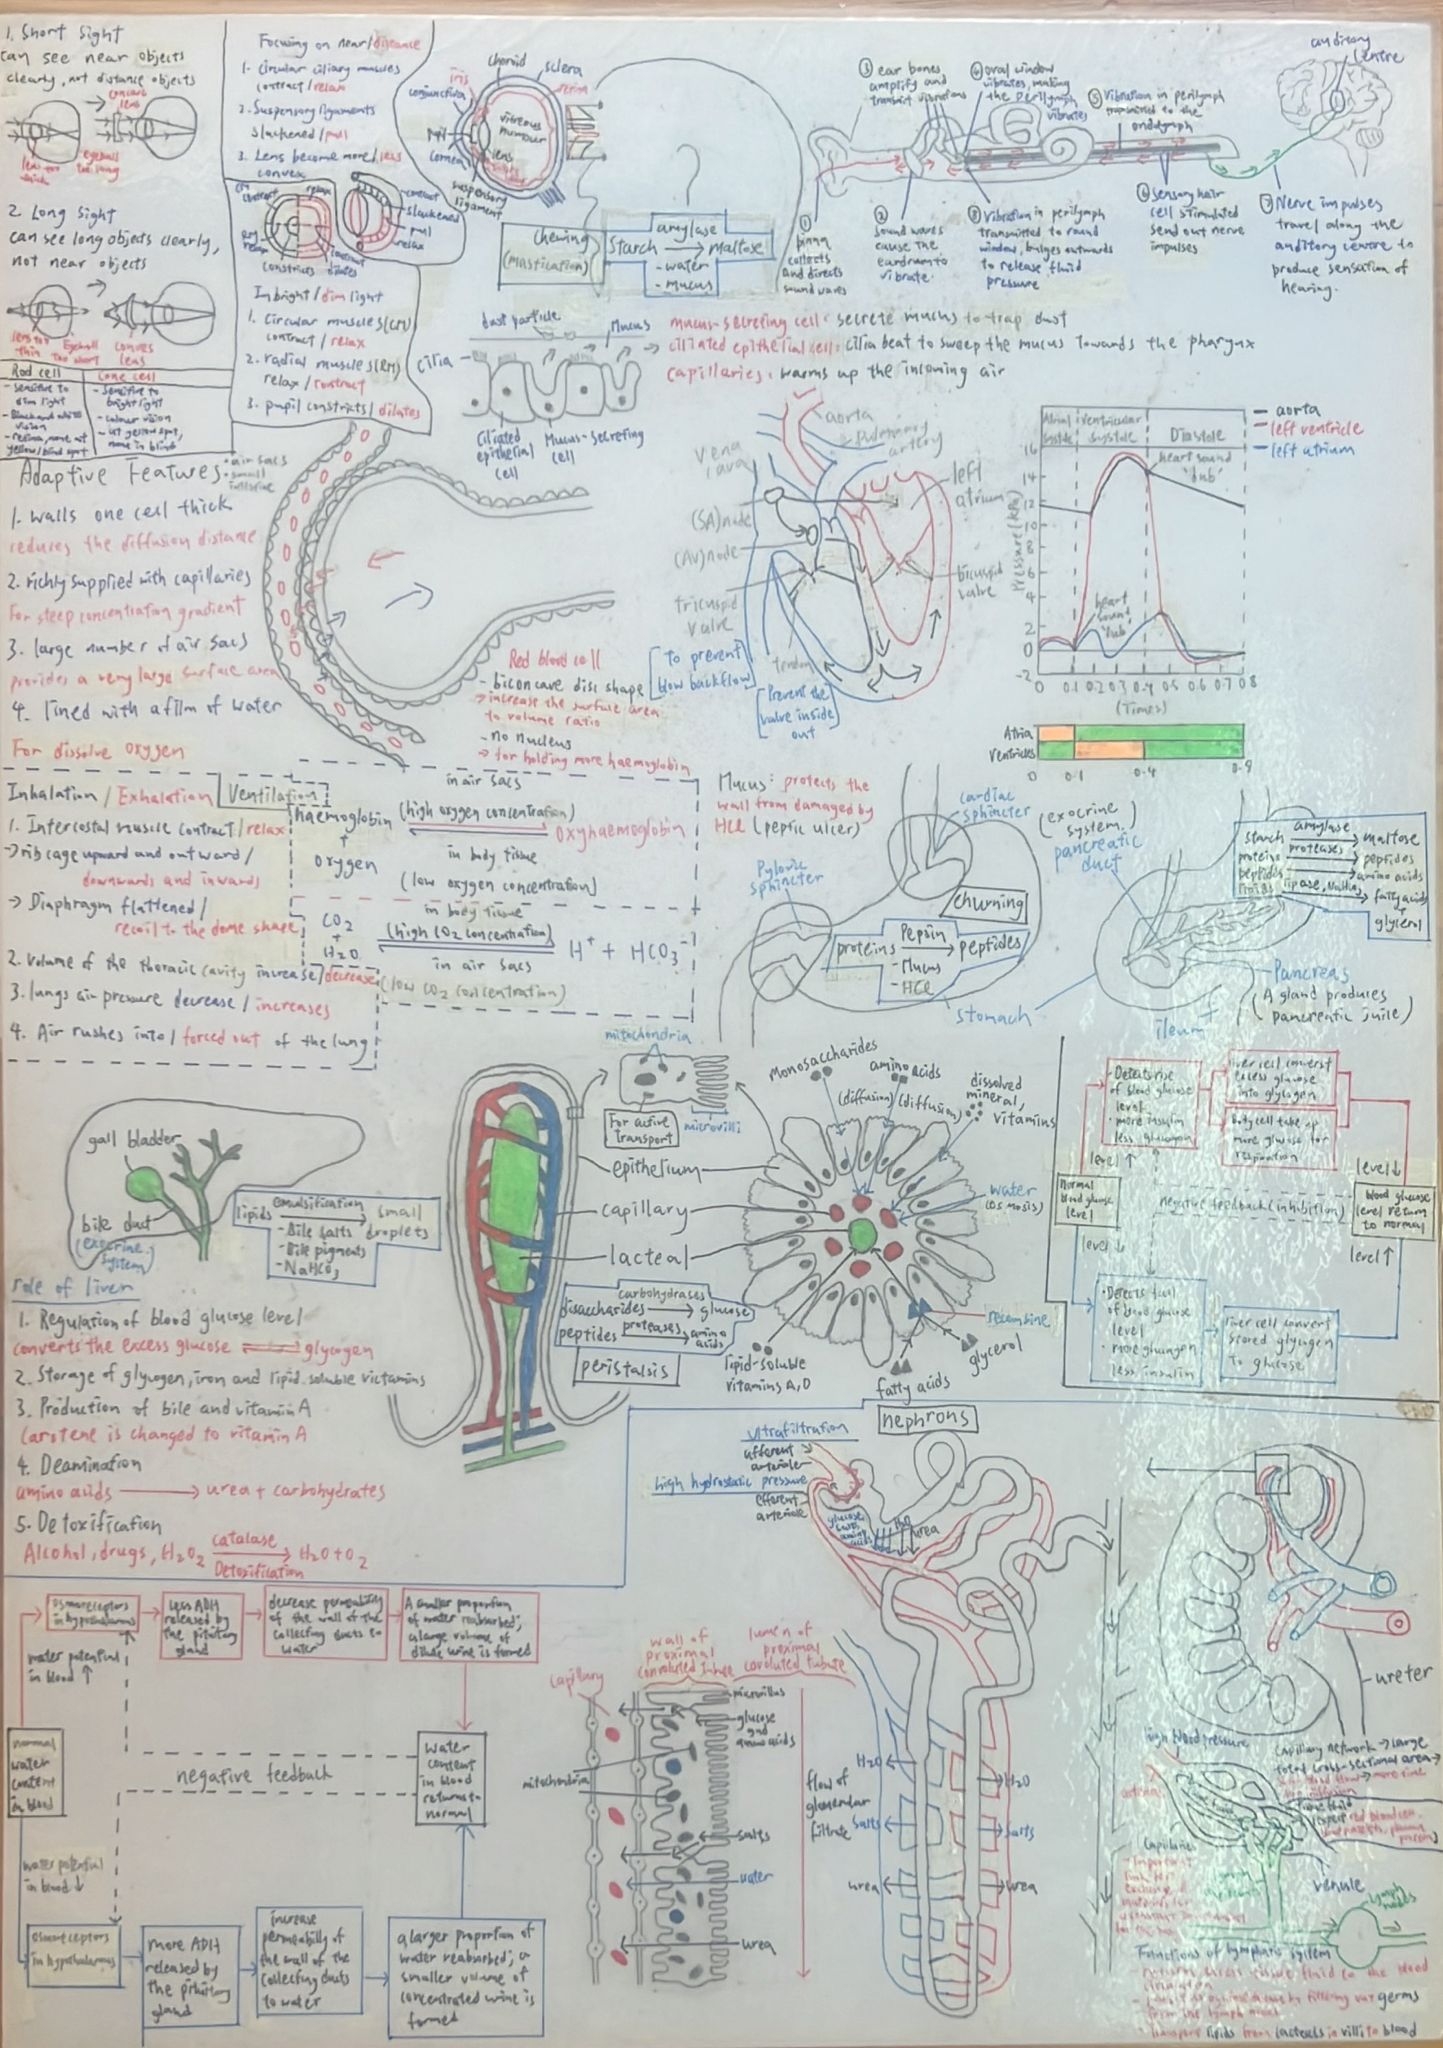 1. Short sight
can see near objects
clearly, not distance objects
concave
lens
lens too
thick
eyeball
too long
2. Long sight
can see long objects clearly,
not near objects
lens too
thin
Eyeball
too short
convex
lens
Rod cell
- sensitive to
dim light
- Black and white
vision
- retina, none at
yellow/blind spot
Cone cell
- sensitive to
bright light
- colour vision
- at yellow spot,
none in blind
Focusing on near/distance
1. Circular ciliary muscles
contract/relax
2. Suspensory ligaments
slackened/pull
3. Lens become more/less
convex
contract
slackened
pull
relax
relax
constricts
dilates
In bright/dim light
1. Circular muscles(CM)
contract/relax
2. radial muscles(RM)
relax/contract
3. pupil constricts/dilates
choroid
sclera
iris
retina
conjunctiva
vitreous
humour
pupil
cornea
lens
suspensory
ligament
chewing
(mastication)
amylase
Starch → maltose
- water
- mucus
① pinna
collects
and directs
sound waves
② sound waves
cause the
eardrum to
vibrate.
③ ear bones
amplify and
transmit vibrations
④ oval window
vibrates, making
the perilymph
vibrates
⑤ Vibration in perilymph
transmitted to the
endolymph
⑥ Sensory hair
cell stimulated
send out nerve
impulses
⑦ Nerve impulses
travel along the
auditory centre to
produce sensation of
hearing.
⑧ Vibration in perilymph
transmitted to round
window, bulges outwards
to release fluid
pressure
auditory
centre
dust particle
Mucus
cilia
Ciliated
epithelial
cell
Mucus-secreting
cell
mucus-secreting cell: secrete mucus to trap dust
ciliated epithelial cell: cilia beat to sweep the mucus towards the pharynx
capillaries: warms up the incoming air
Adaptive Features: • air sacs
• small
intestine
1. walls one cell thick
reduces the diffusion distance
2. richly supplied with capillaries
For steep concentration gradient
3. large number of air sacs
provides a very large surface area
4. lined with a film of water
For dissolve oxygen
Red blood cell
- biconcave disc shape
→ increase the surface area
to volume ratio
- no nucleus
→ for holding more haemoglobin
aorta
Pulmonary
artery
Vena
cava
left
atrium
(SA)node
(AV)node
bicuspid
valve
tricuspid
valve
tendon
[To prevent
blow backflow]
[Prevent the
valve inside
out]
Atrial
systole
ventricular
systole
Diastole
heart sound
'dub'
heart
sound
'lub'
— aorta
— left ventricle
— left atrium
Pressure(kPa)
16
14
12
10
8
6
4
2
0
-2
0 0.1 0.2 0.3 0.4 0.5 0.6 0.7 0.8
(Times)
Atria
Ventricles
0 0.1 0.4
Inhalation/Exhalation
Ventilation
1. Intercostal muscle contract/relax
→ rib cage upward and outward/
downwards and inwards
→ Diaphragm flattened/
recoil to the dome shape
2. volume of the thoracic cavity increase/decrease
3. lungs air pressure decrease/increases
4. Air rushes into/forced out of the lung
in air sacs
haemoglobin
+
oxygen
(high oxygen concentration)
Oxyhaemoglobin
in body tissue
(low oxygen concentration)
in body tissue
CO₂
+
H₂O
(high CO₂ concentration)
H⁺ + HCO₃⁻¹
in air sacs
(low CO₂ concentration)
Mucus: protects the
wall from damaged by
HCl (peptic ulcer)
cardiac
sphincter
Pyloric
sphincter
churning
Pepsin
proteins → peptides
- Mucus
- HCl
stomach
(exocrine
system)
pancreatic
duct
starch amylase → maltose
proteins proteases → peptides
peptides → amino acids
lipids lipase → fatty acids
+
glycerol
Pancreas
(A gland produces
pancreatic juile)
ileum
gall bladder
bile duct
(exocrine
system)
emulsification
lipids → small
droplets
- Bile salts
- Bile pigments
- NaHCO₃
mitochondria
For active
transport
microvilli
epithelium
capillary
lacteal
carbohydrases
disaccharides → glucose
peptides proteases → amino
acids
peristalsis
Monosaccharides
amino acids
(diffusion) (diffusion)
dissolved
mineral,
vitamins
water
(osmosis)
recombine
glycerol
fatty acids
lipid-soluble
vitamins A, D
• Detects rise
of blood glucose
level
• more insulin
less glucagon
liver cell convert
excess glucose
into glycogen
Body cell take up
more glucose for
respiration
level ↑
level ↓
Normal
blood glucose
level
negative feedback (inhibition)
blood glucose
level return
to normal
level ↓
level ↑
• Detects fall
of blood glucose
level
• more glucagon
less insulin
liver cell convert
stored glycogen
to glucose
role of liver
1. Regulation of blood glucose level
converts the excess glucose ⇌ glycogen
2. Storage of glycogen, iron and lipid-soluble victamins
3. Production of bile and vitamin A
Carotene is changed to vitamin A
4. Deamination
amino acids → urea + carbohydrates
5. Detoxification
Alcohol, drugs, H₂O₂ catalase → H₂O + O₂
Detoxification
nephrons
ultrafiltration
afferent
arteriole
high hydrostatic pressure
efferent
arteriole
glucose
H₂O
urea
H₂O
Salts
urea
H₂O
salts
urea
flow of
glomerular
filtrate
ureter
osmoreceptors
in hypothalamus
Less ADH
released by
the pituitary
gland
decrease permeability
of the wall of the
collecting ducts to
water
A smaller proportion
of water reabsorbed;
a large volume of
dilute urine is formed
water potential
in blood ↑
normal
water
content
in blood
negative feedback
Water
content
in blood
returns to
normal
water potential
in blood ↓
osmoreceptors
in hypothalamus
more ADH
released by
the pituitary
gland
increase
permeability of
the wall of the
collecting ducts
to water
a larger proportion of
water reabsorbed; a
smaller volume of
concentrated urine is
formed
Capillary
wall of
proximal
convoluted tubule
lumen of
proximal
convoluted tubule
microvillus
glucose
and
amino acids
mitochondria
salts
water
urea
high blood pressure
Capillary network → large
total cross-sectional area →
venule
lymph
nodes
Functions of lymphatic system
- returns excess tissue fluid to the blood
germs
from the lymph nodes
- Transport lipids from lacteals in villi to blood